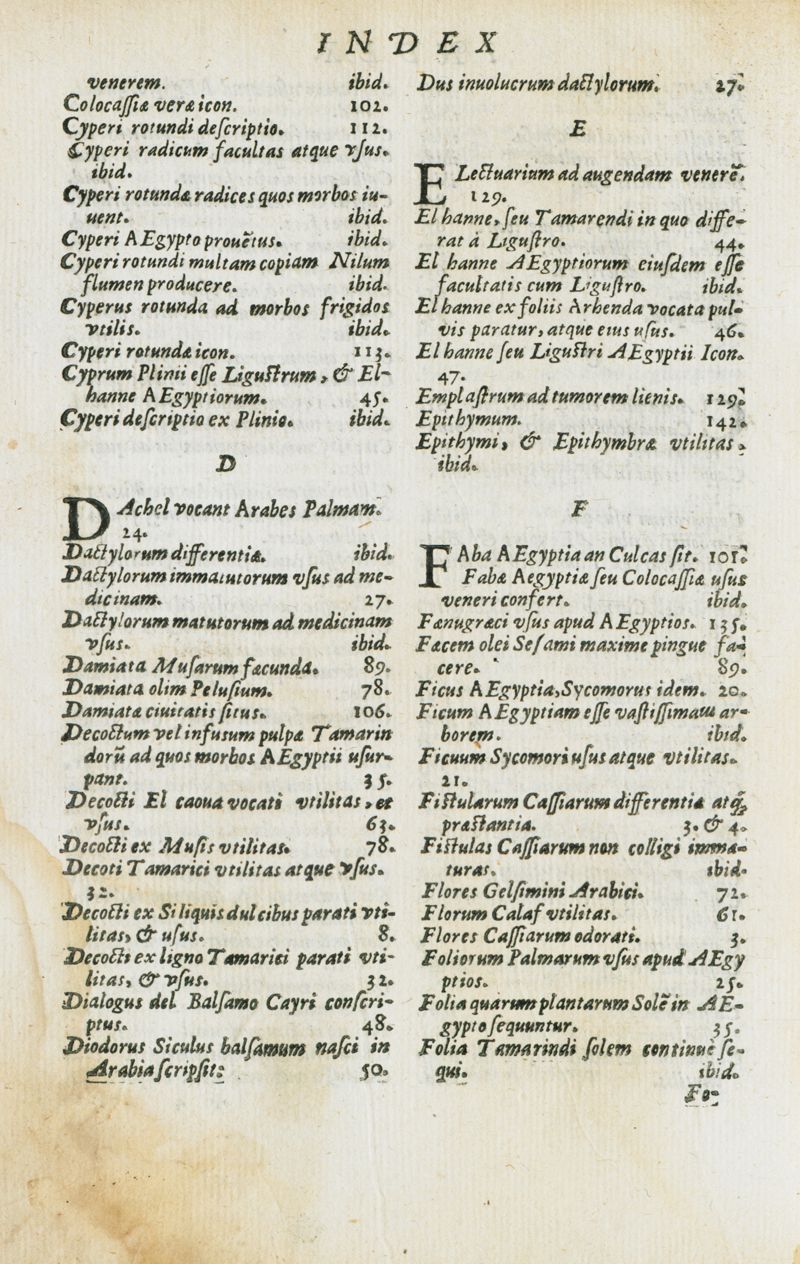 INDEX
venerem. ibid.
Colocaſſiæ veræ icon. 102.
Cyperi rotundi deſcriptio. 112.
Cyperi radicum facultas atque vſus.
ibid.
Cyperi rotundæ radices quos morbos iu-
uent. ibid.
Cyperi AEgypto prouẽtus. ibid.
Cyperi rotundi multam copiam Nilum
flumen producere. ibid.
Cyperus rotunda ad morbos frigidos
vtilis. ibid.
Cyperi rotundæ icon. 113.
Cyprum Plinii eſſe Liguſtrum, & El-
hanne AEgyptiorum. 45.
Cyperi deſcriptio ex Plinio. ibid.
D
DAchel vocant Arabes Palmam.
24.
Dactylorum differentiæ. ibid.
Dactylorum immatutorum vſus ad me-
dicinam. 27.
Dactylorum matutorum ad medicinam
vſus. ibid.
Damiata Muſarum fæcunda. 89.
Damiata olim Peluſium. 78.
Damiatæ ciuitatis ſitus. 106.
Decoctum vel infuſum pulpæ Tamarin
dorũ ad quos morbos AEgyptii uſur-
pant. 35.
Decocti El caoua vocati vtilitas, et
vſus. 63.
Decocti ex Muſis vtilitas. 78.
Decoti Tamarici vtilitas atque vſus.
32.
Decocti ex Siliquis dulcibus parati vti-
litas, & uſus. 8.
Decocti ex ligno Tamarici parati vti-
litas, & vſus. 32.
Dialogus del Balſamo Cayri conſcri-
ptus. 48.
Diodorus Siculus balſamum naſci in
Arabia ſcripſit: 50.
Dus inuolucrum dactylorum. 27.
E
ELectuarium ad augendam venerẽ.
129.
El hanne, ſeu Tamarendi in quo diffe-
rat á Liguſtro. 44.
El hanne AEgyptiorum eiuſdem eſſe
facultatis cum Liguſtro. ibid.
El hanne ex foliis Arhenda vocata pul-
vis paratur, atque eius uſus. 46.
El hanne ſeu Liguſtri AEgyptii Icon.
47.
Emplaſtrum ad tumorem lienis. 129.
Epithymum. 142.
Epithymi, & Epithymbræ vtilitas.
ibid.
F
FAba AEgyptia an Culcas ſit. 101.
Fabæ Aegyptiæ ſeu Colocaſſiæ uſus
veneri confert. ibid.
Fænugræci vſus apud AEgyptios. 135.
Fæcem olei Seſami maxime pingue fa-
cere. 89.
Ficus AEgyptia, Sycomorus idem. 20.
Ficum AEgyptiam eſſe vaſtiſſimam ar-
borem. ibid.
Ficuum Sycomori uſus atque vtilitas.
21.
Fiſtularum Caſſiarum differentiæ atq́;
præſtantia. 3. & 4.
Fiſtulas Caſſiarum non colligi imma-
turas. ibid.
Flores Gelſimini Arabici. 72.
Florum Calaf vtilitas. 61.
Flores Caſſiarum odorati. 3.
Foliorum Palmarum vſus apud AEgy
ptios. 25.
Folia quarum plantarum Solẽ in AE-
gypto ſequuntur. 35.
Folia Tamarindi ſolem continue ſe-
qui. ibid.
Fo-